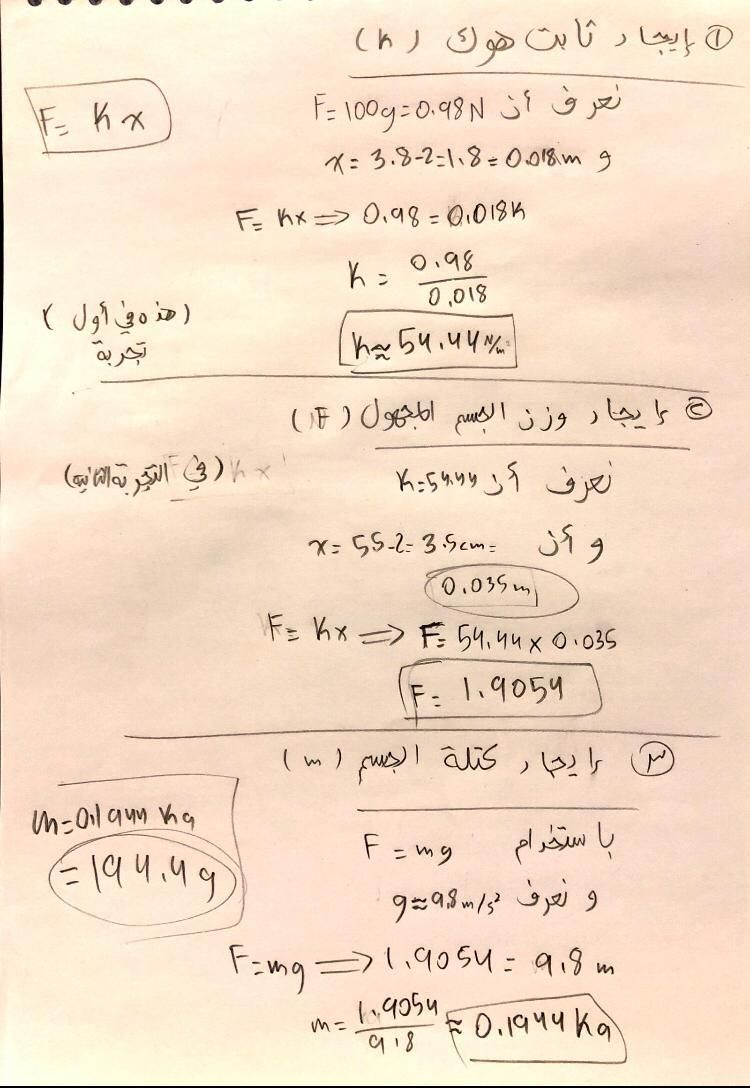 ① إيجاد ثابت هوك (K)
F= Kx
نعرف أن F=100g=0.98N
و x=3.8-2=1.8=0.018m
F= Kx ⟹ 0.98=0.018K
K = 0.98/0.018
K≈54.44 N/m
(هذه في أول تجربة)
② إيجاد وزن الجسم المجهول (F)
(في التجربة الثانية)
نعرف أن K=54.44
و أن x=55-2=3.5cm=
0.035m
F= Kx ⟹ F=54.44x0.035
F= 1.9054
③ إيجاد كتلة الجسم (m)
باستخدام F=mg
و نعرف g≈9.8m/s²
F=mg ⟹ 1.9054 = 9.8 m
m= 1.9054/9.8 ≈ 0.1944 Kg
m=0.1944 Kg
=194.4g